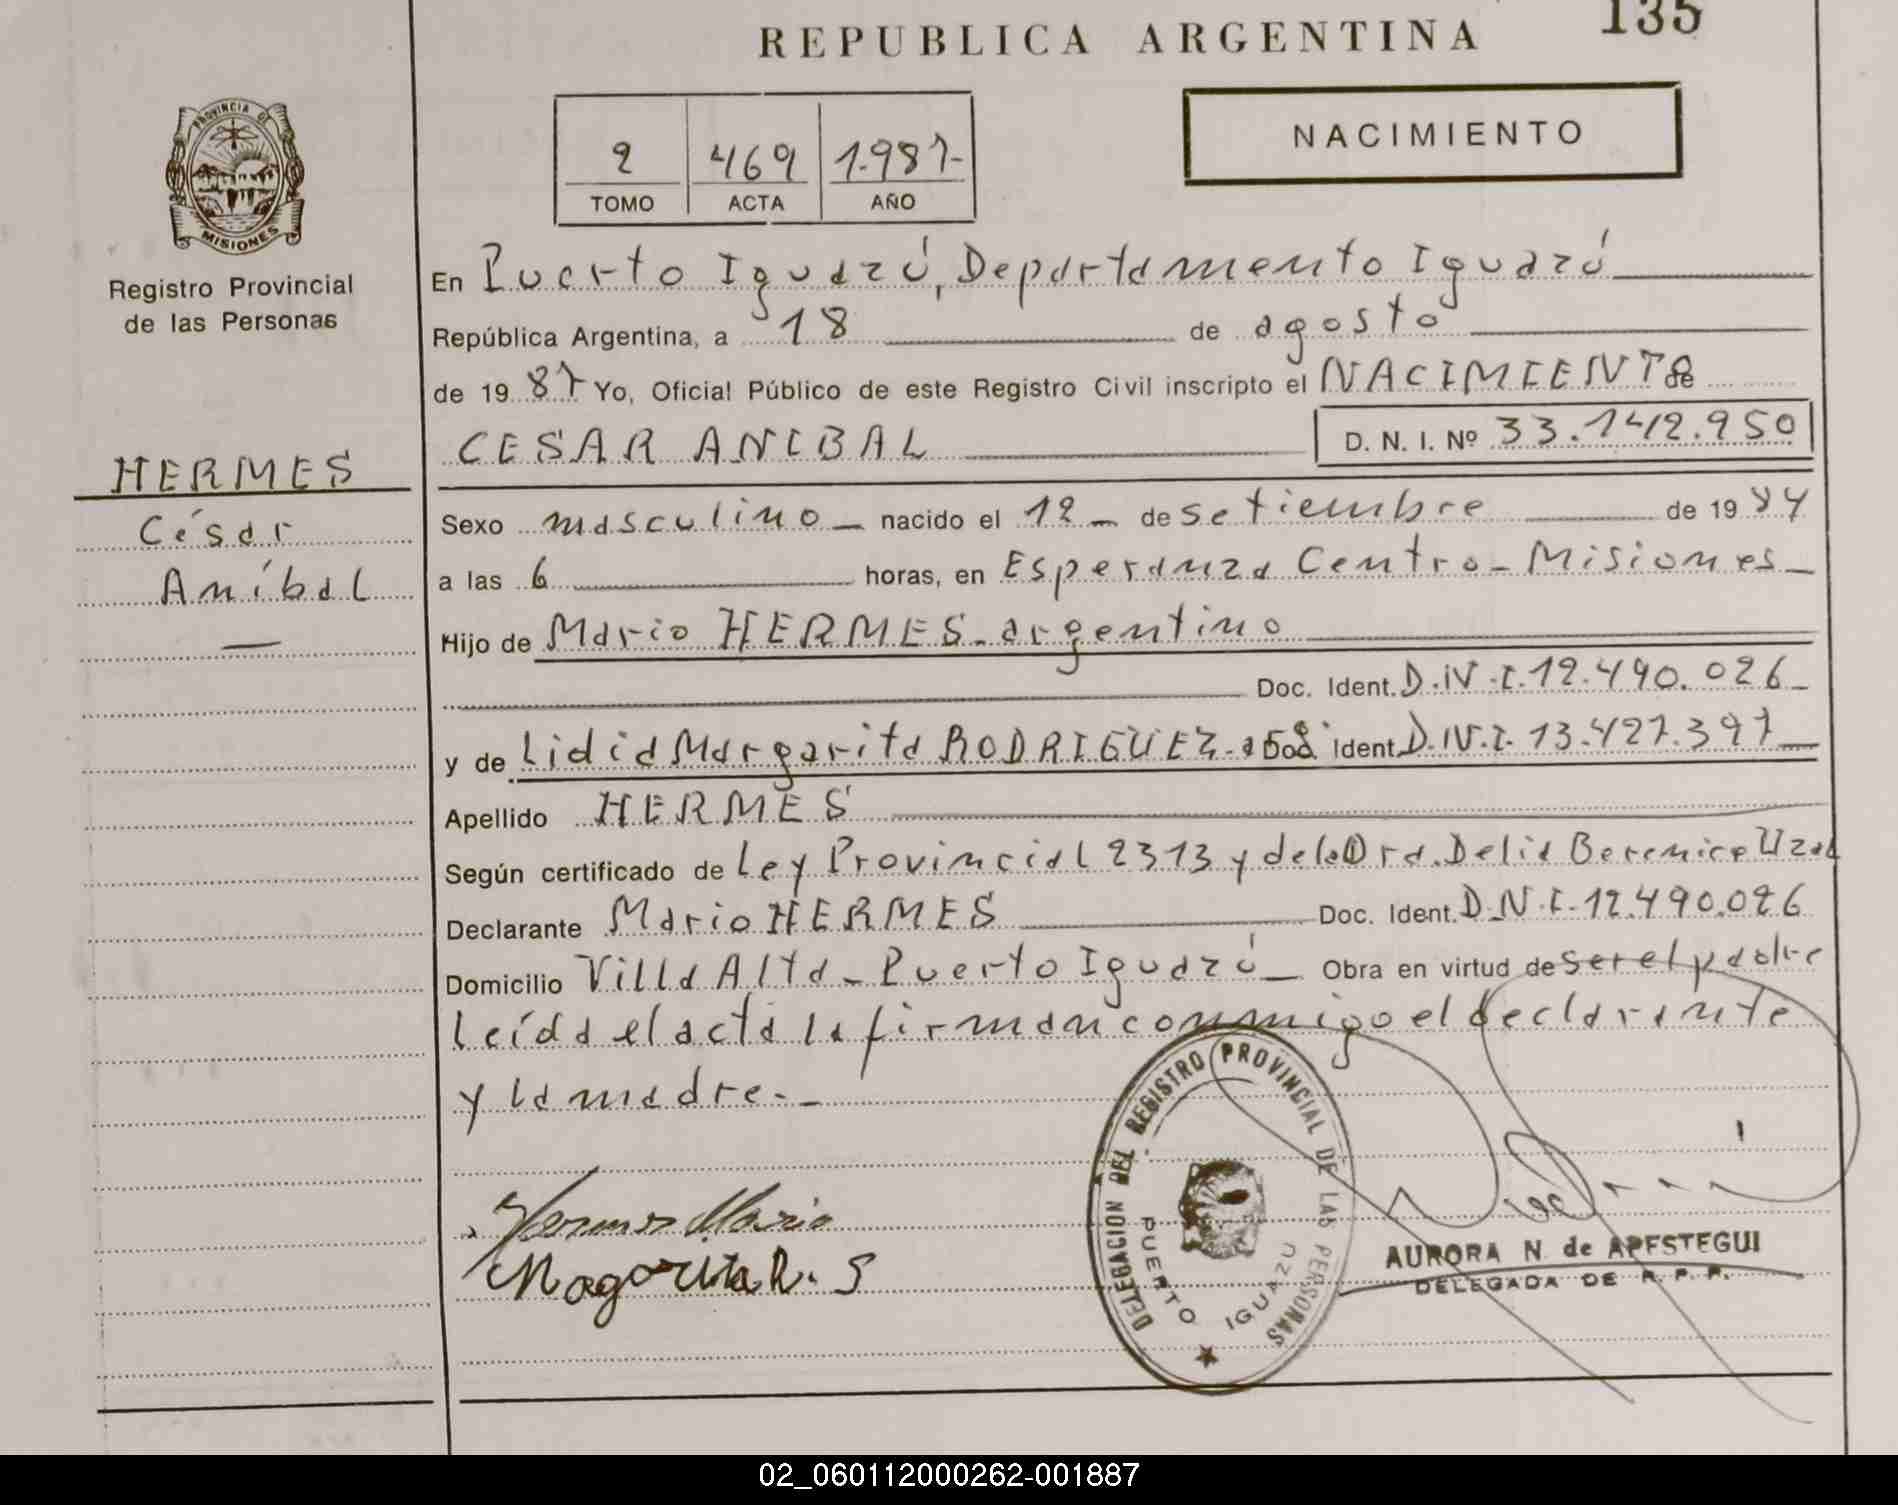 REPUBLICA ARGENTINA
135
PROVINCIA DE
MISIONES
Registro Provincial
de las Personas
2 469 1.987-
TOMO ACTA AÑO
NACIMIENTO
HERMES
César
Aníbal
—
En Puerto Iguazú, Departamento Iguazú
República Argentina, a 18 de agosto
de 19 87 Yo, Oficial Público de este Registro Civil inscripto el NACIMIENTO de
CESAR ANIBAL D. N. I. Nº 33.142.950
Sexo masculino - nacido el 12 - de setiembre de 19 84
a las 6 horas, en Esperanza Centro - Misiones -
Hijo de Mario HERMES - argentino
Doc. Ident. D.N.I. 12.490.026 -
y de Lidia Margarita RODRIGUEZ - Ident. D.N.I. 13.427.397
Apellido HERMES
Según certificado de Ley Provincial 2313 y de la Dra. Delia Berenice Uzal
Declarante Mario HERMES Doc. Ident. D.N.I. 12.490.026
Domicilio Villa Alta - Puerto Iguazú - Obra en virtud de ser el padre
Leída el acta la firman conmigo el declarante
y la madre. -
Hermes Mario
Magarita R. S
DELEGACION DEL REGISTRO PROVINCIAL DE LAS PERSONAS
PUERTO IGUAZU
AURORA N. de APESTEGUI
DELEGADA DE R. P. P.
02_060112000262-001887